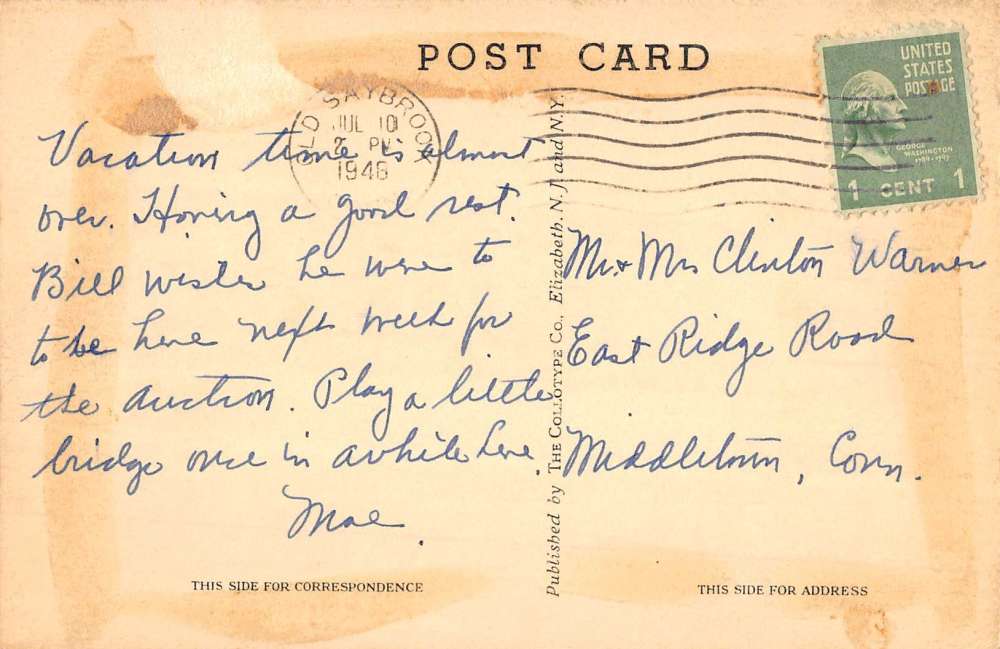 POST CARD
OLD SAYBROOK
JUL 10
2 PM
1946
UNITED
STATES
POSTAGE
GEORGE
WASHINGTON
1789-1797
1 CENT 1
Vacation time is almost
over. Having a good rest.
Bill wishes he were to
to be here next week for
the auction. Play a little
bridge once in awhile here.
Mae.
Published by THE COLLOTYPE CO., Elizabeth, N. J. and N.Y.
Mr. & Mrs Clinton Warner
East Ridge Road
Middletown, Conn.
THIS SIDE FOR CORRESPONDENCE
THIS SIDE FOR ADDRESS